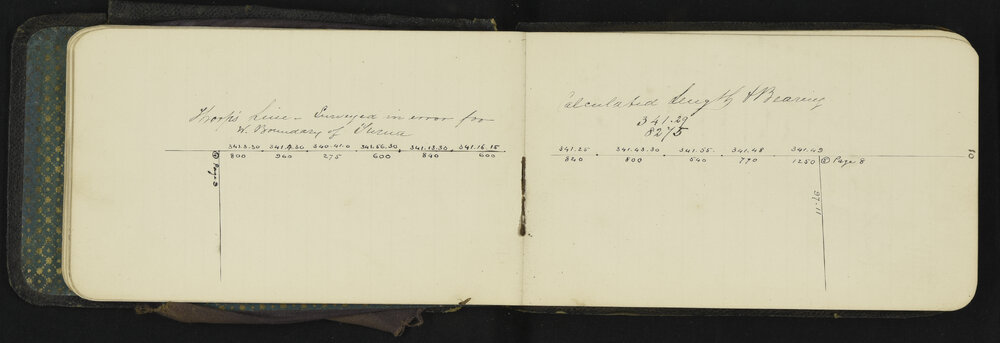 Line - Surveyed in error for
W. Boundary of
342.3.30 341.9.30 340.41.0 342.56.30 341.13.30 341.16.15
800 960 275 600 840 600
@ Page 8
Calculated Length & Bearing
341.29
8275
341.25 341.43.30 341.55 341.48 341.49
840 800 540 770 1250 @ Page 8
97.11
10